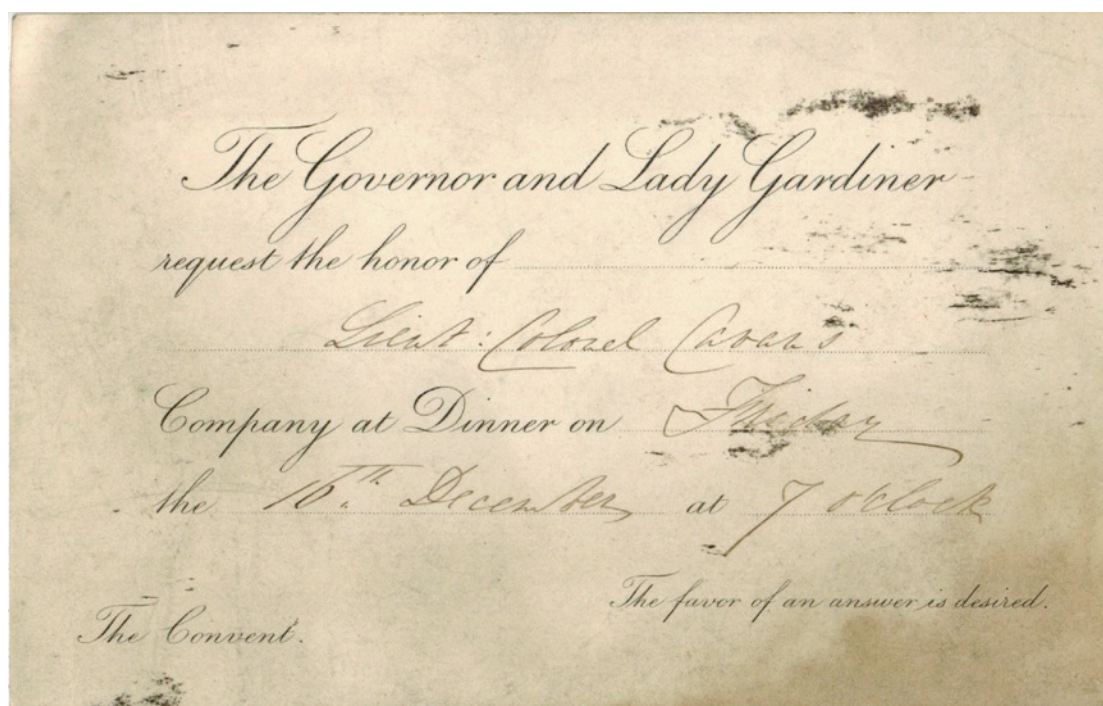 The Governor and Lady Gardiner
request the honor of
Lieut: Colonel Cavan's
Company at Dinner on Friday
the 16th. December at 7 o'clock
The favor of an answer is desired.
The Convent.